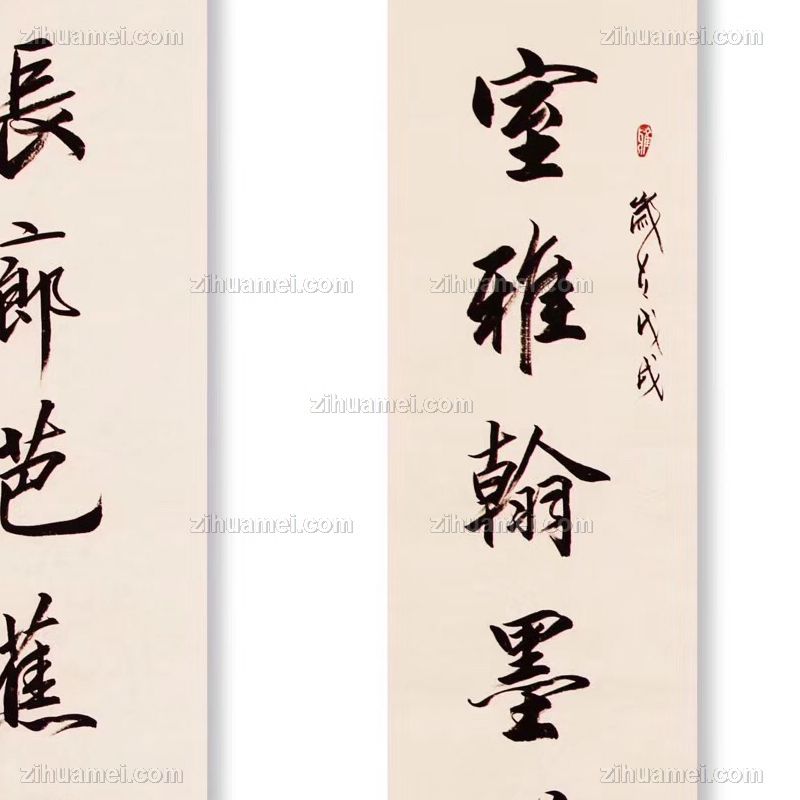 室雅翰墨
歲在戊戌
雅
長廊芭蕉
zihuamei.com
zihuamei.com
zihuamei.com
zihuamei.com
zihuamei.com
zihuamei.com
zihuamei.com
zihuamei.com
zihuamei.com